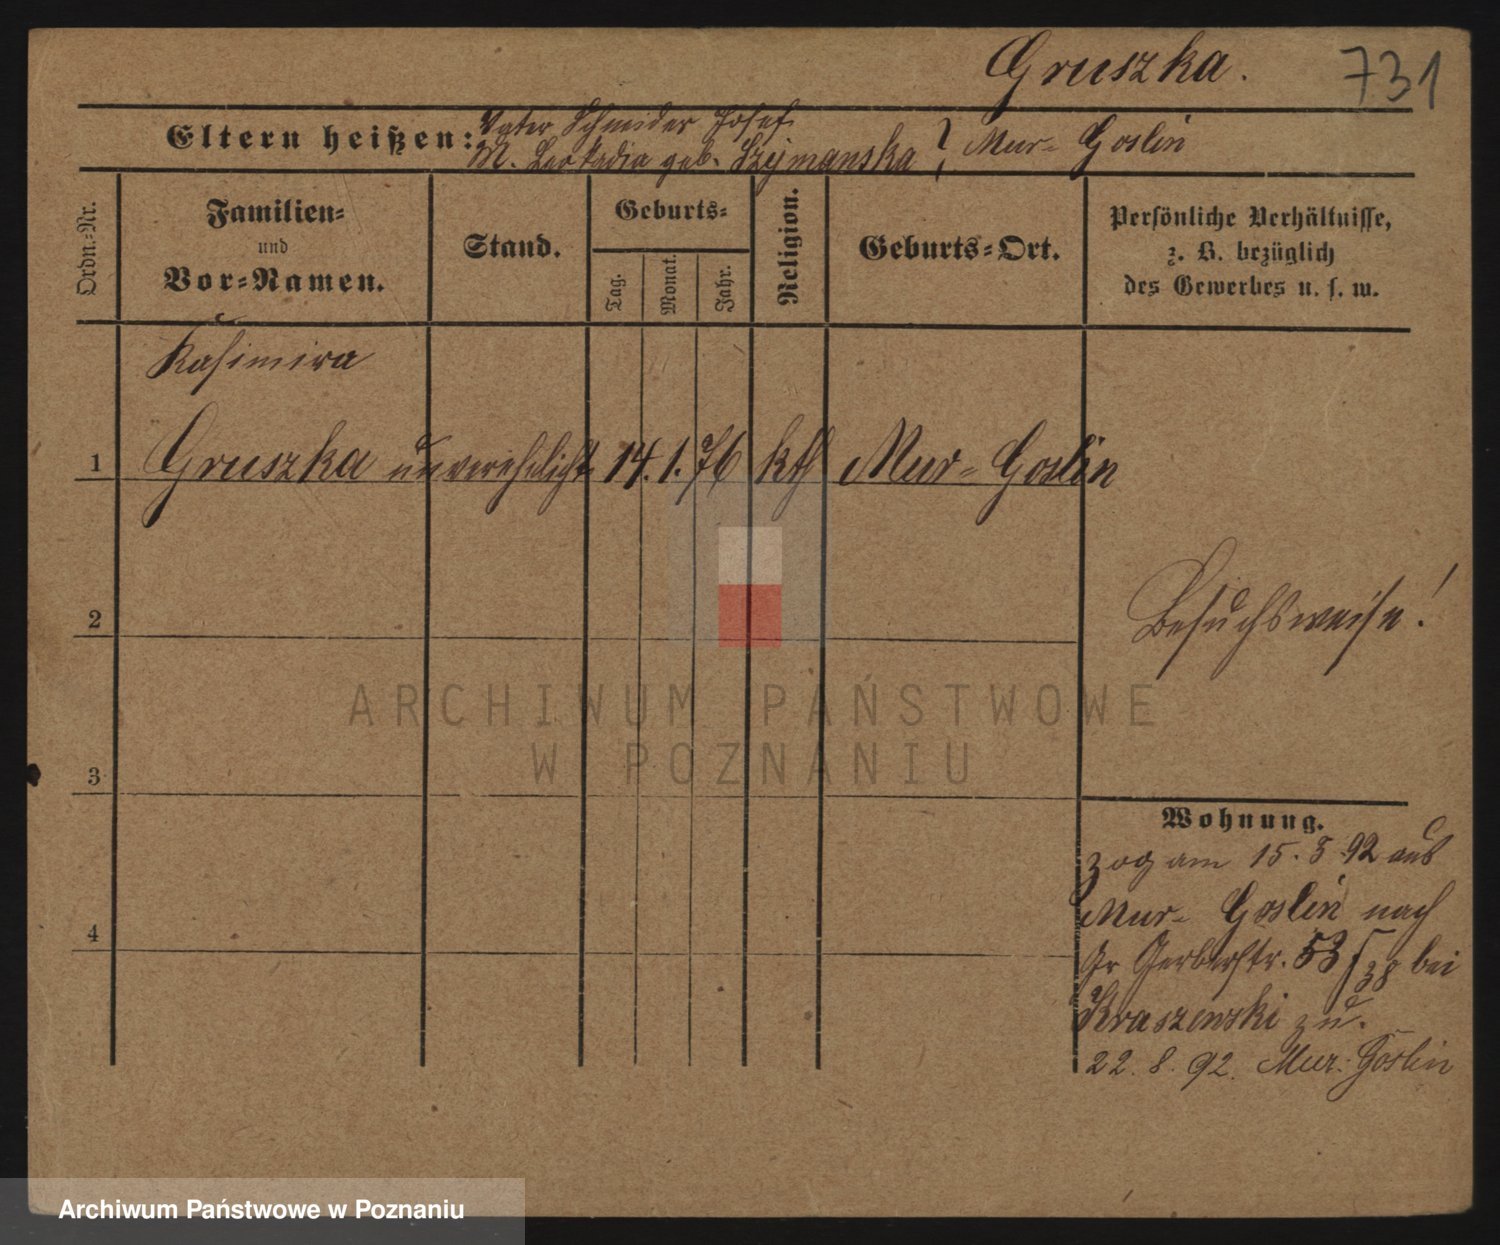 Gruszka.
731
Eltern heißen:
Vater Schneider Josef
M. Leokadia geb. Szymanska } Mur- Goslin
Ordn.-Nr.
Familien-
und
Vor-Namen.
Stand.
Geburts-
Tag.
Monat.
Jahr.
Religion.
Geburts-Ort.
Persönliche Verhältnisse,
z. B. bezüglich
des Gewerbes u. s. w.
Kasimira
1 Gruszka unverehelicht 14. 1. 76 kth Mur- Goslin
2
Besuchsweise!
ARCHIWUM PAŃSTWOWE
W POZNANIU
3
Wohnung.
zog am 15. 8 92 aus
Mur- Goslin nach
4
Gr Gerberstr. 53 bei
Kraszewski zu.
22. 8. 92. Mur. Goslin
Archiwum Państwowe w Poznaniu